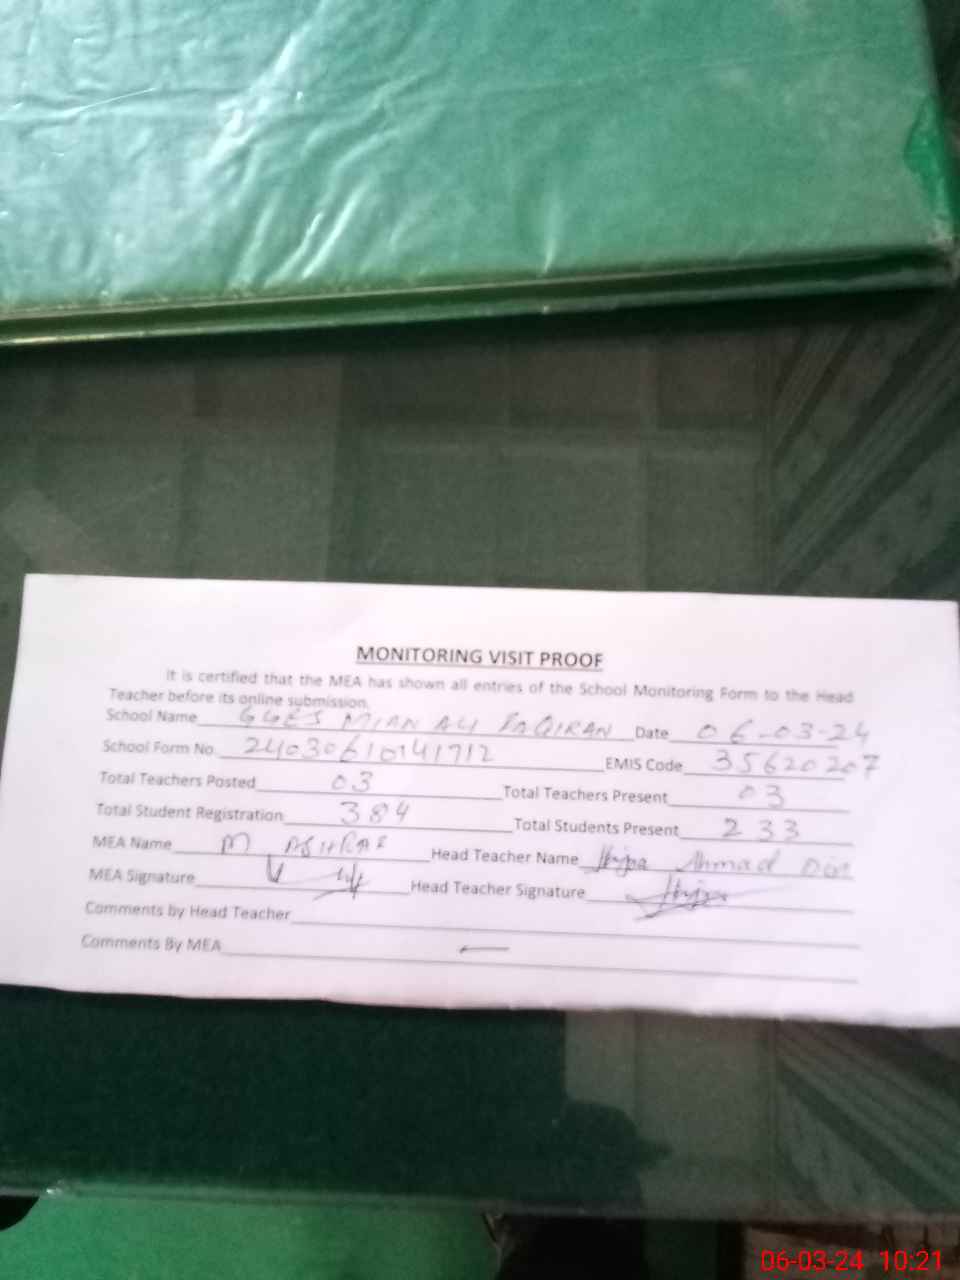 MONITORING VISIT PROOF
It is certified that the MEA has shown all entries of the School Monitoring Form to the Head
Teacher before its online submission.
School Name GGES MIAN ALI FAQIRAN Date 06-03-24
School Form No. 24030610141712 EMIS Code 35620207
Total Teachers Posted 03 Total Teachers Present 03
Total Student Registration 384 Total Students Present 233
MEA Name M ASHRAF Head Teacher Name Ahmad Din
MEA Signature Head Teacher Signature
Comments by Head Teacher
Comments By MEA
06-03-24 10:21